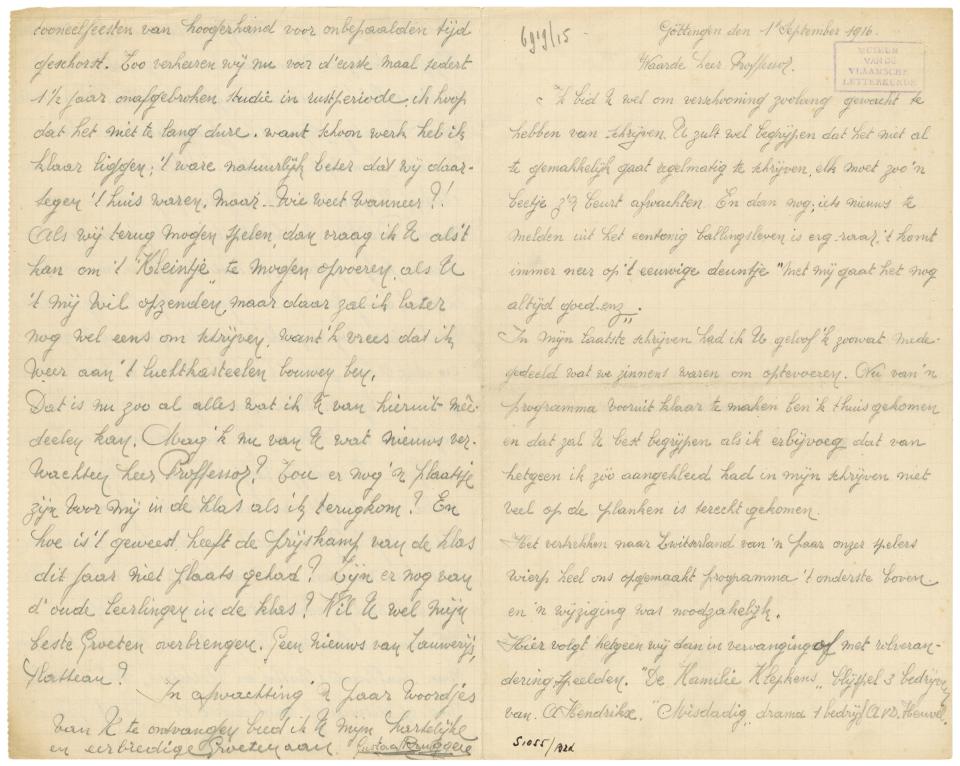 6919/15
Göttingen den 1e September 1916.
MUSEUM
VAN DE
VLAAMSCHE
LETTERKUNDE
Waarde heer Professor.
'K bid U wel om verschooning zoolang gewacht te
hebben van schrijven. U zult wel begrijpen dat het niet al
te gemakkelijk gaat regelmatig te schrijven, elk moet zoo'n
beetje z'n beurt afwachten. En dan nog, iets nieuws te
melden uit het eentonig ballingsleven is erg raar, 't komt
immer neer op 't eeuwige deuntje "met mij gaat het nog
altijd goed enz„.
In mijn laatste schrijven had ik U geloof 'k zoowat mede-
gedeeld wat we zinnens waren om optevoeren. Nu van 'n
programma vooruit klaar te maken ben 'k thuis gekomen
en dat zal U best begrijpen als ik erbijvoeg dat van
hetgeen ik zóo aangekleed had in mijn schrijven niet
veel op de planken is terecht gekomen.
Het vertrekken naar Zwitserland van 'n paar onzer spelers
wierp heel ons opgemaakt programma 't onderste boven
en 'n wijziging was noodzakelijk.
Hier volgt hetgeen wij dan in vervanging of met rolveran-
dering speelden. "De Familie Klepkens„ blijspel 3 bedrijven
van A Hendrikx. "Misdadig„ drama 1 bedrijf A.v.d. Heuvel.
S1055/
tooneelfeesten van hoogerhand voor onbepaalden tijd
geschorst. Zoo verkeeren wij nu voor d'eerste maal sedert
1½ jaar onafgebroken studie in rustperiode, ik hoop
dat het niet te lang dure. want schoon werk heb ik
klaar liggen; 't ware natuurlijk beter dat wij daar-
tegen 't huis waren. Maar... wie weet wanneer?!
Als wij terug mogen spelen, dan vraag ik U als't
kan om 't "Kleintje„ te mogen opvoeren, als U
't mij wil opzenden, maar daar zal ik later
nog wel eens om schrijven, want 'k vrees dat ik
weer aan 't luchtkasteelen bouwen ben.
Dat is nu zoo al alles wat ik U van hieruit mêe-
deelen kan. Mag 'k nu van U wat nieuws ver-
wachten heer Proffessor? Zou er nog 'n plaatsje
zijn voor mij in de klas als ik terugkom? En
hoe is't geweest, heeft de prijskamp van de klas
dit jaar niet plaats gehad? Zijn er nog van
d'oude leerlingen in de klas? Wil U wel mijn
beste Groeten overbrengen. Geen nieuws van Lauwerijs
Platteau?
In afwachting 'n paar woordjes
van U te ontvangen bied ik U mijn hartelijke
en eerbiedige Groeten aan. Gustaaf Bruggere